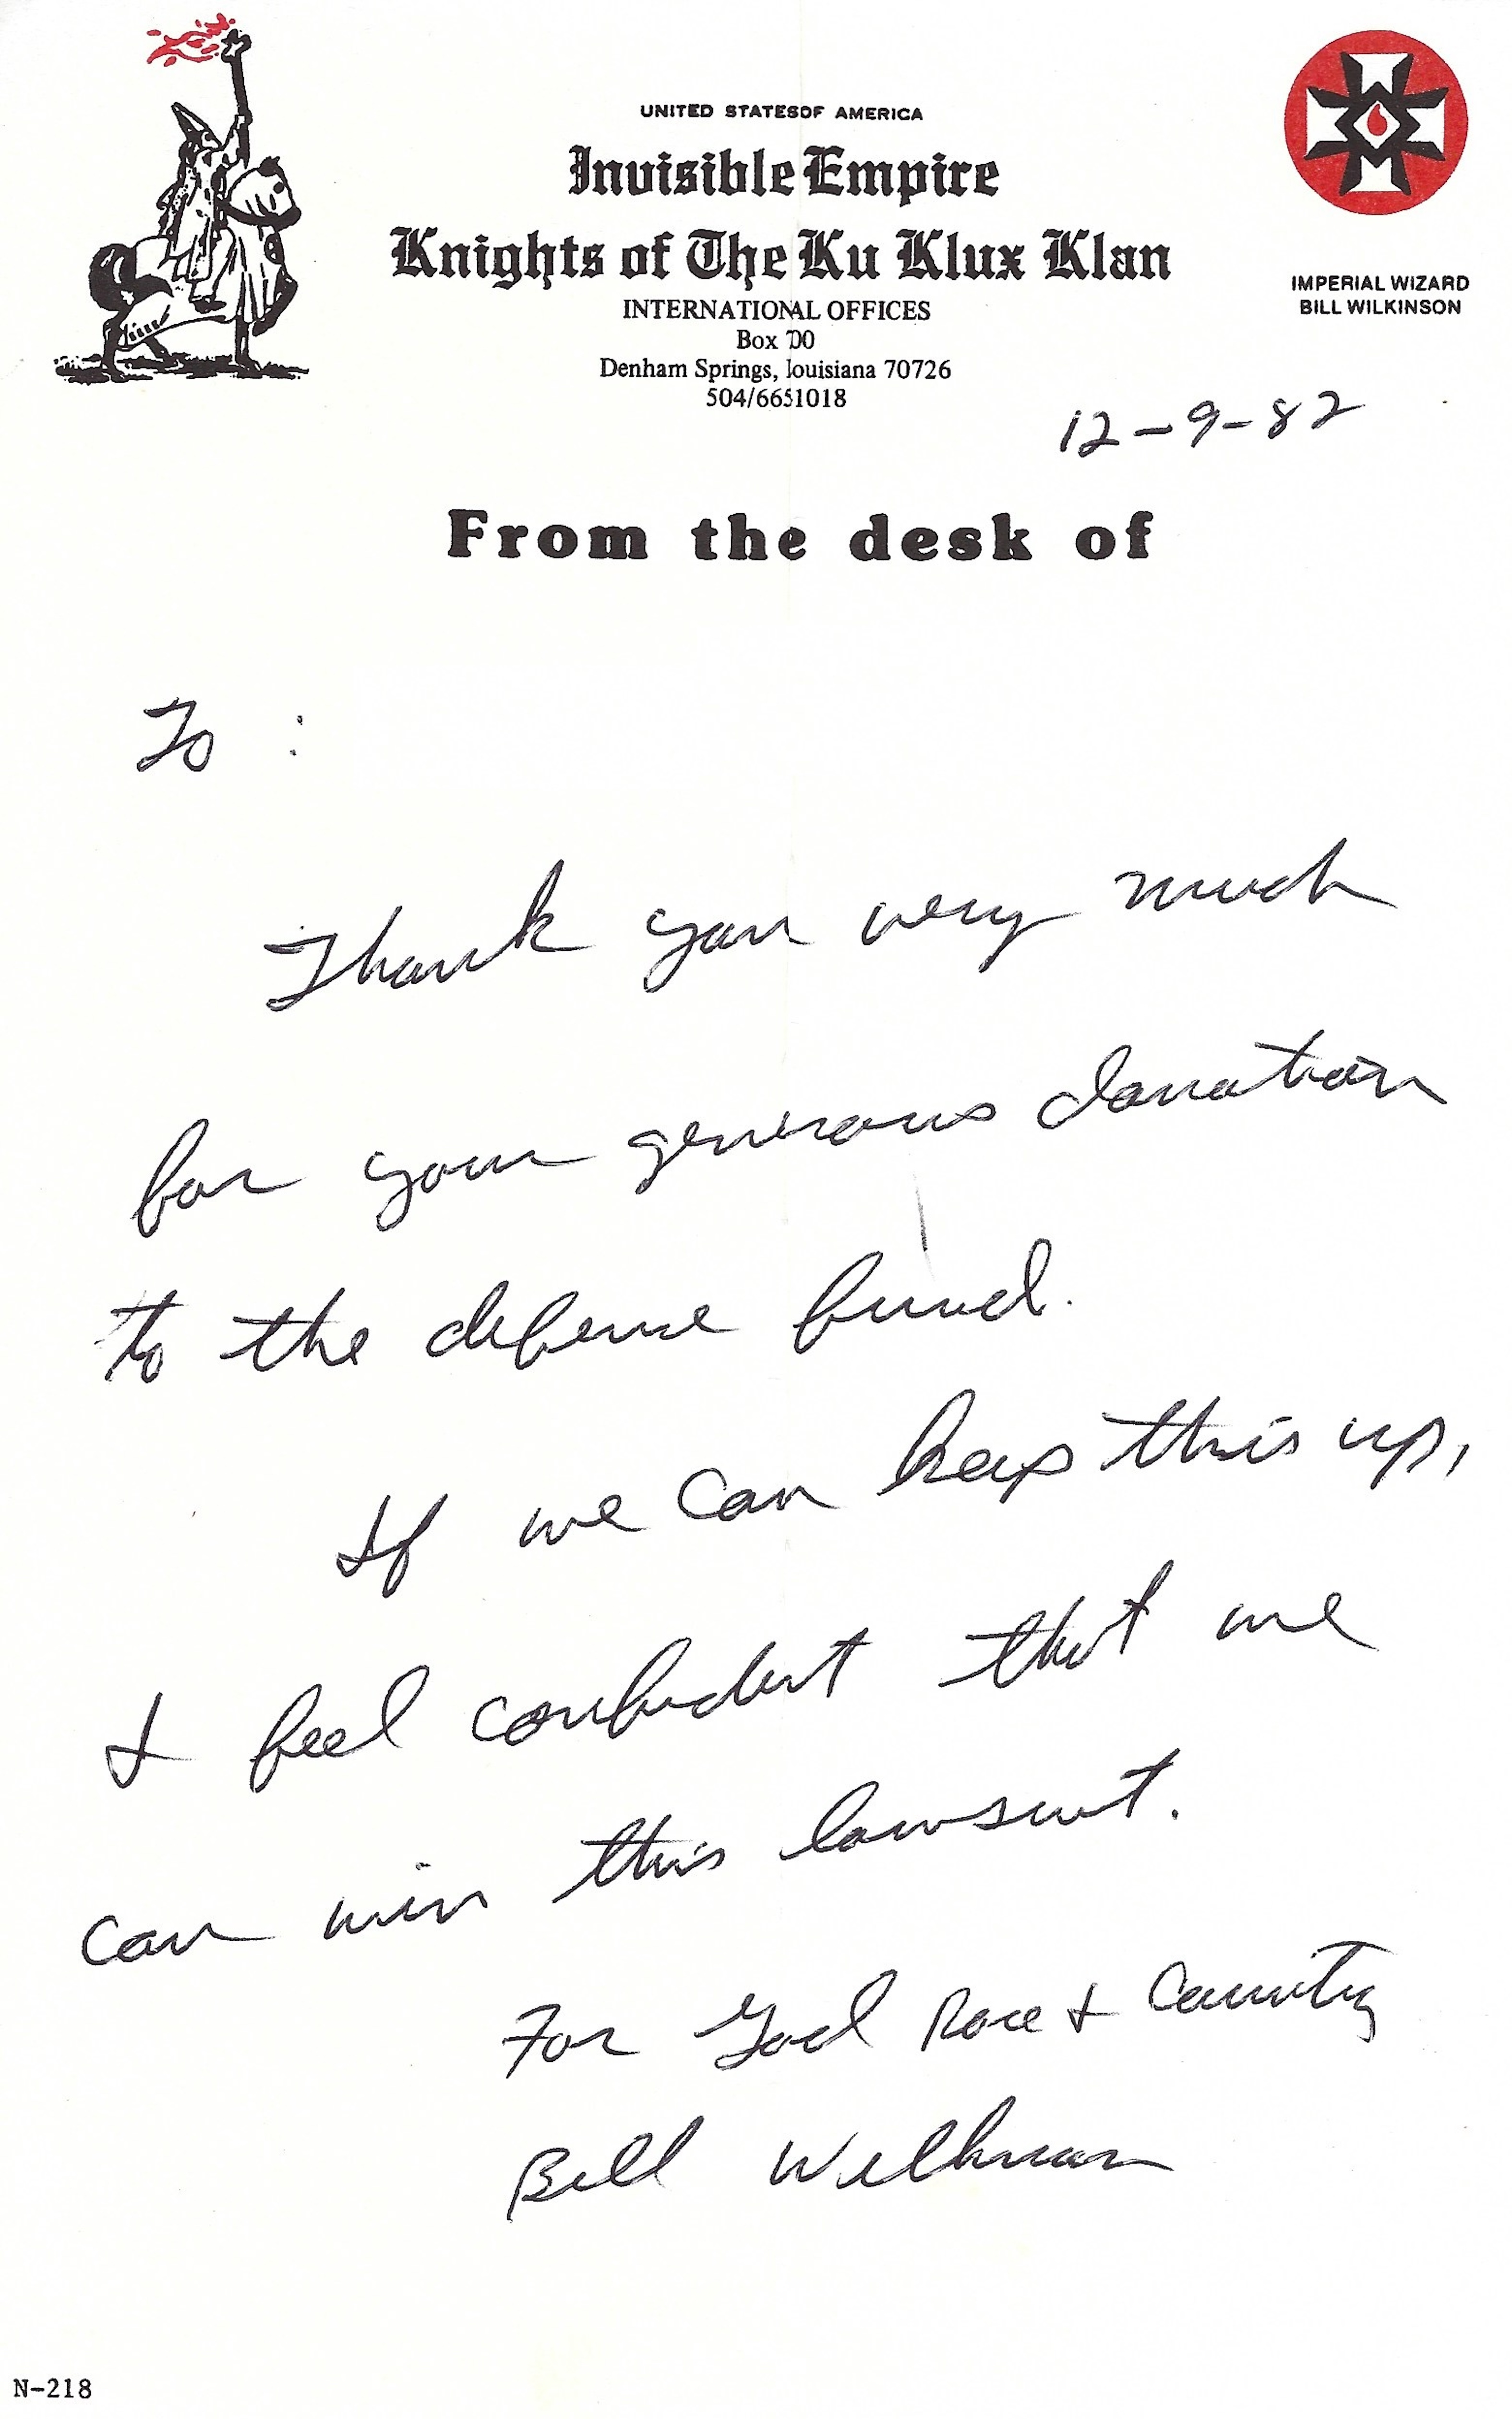 UNITED STATESOF AMERICA
Invisible Empire
Knights of The Ku Klux Klan
INTERNATIONAL OFFICES
Box 700
Denham Springs, Louisiana 70726
504/6651018
IMPERIAL WIZARD
BILL WILKINSON
12-9-82
From the desk of
To :
Thank you very much
for your generous donation
to the defense fund.
If we can keep this up,
I feel confident that we
can win this lawsuit.
For God Race & Country
Bill Wilkinson
N-218